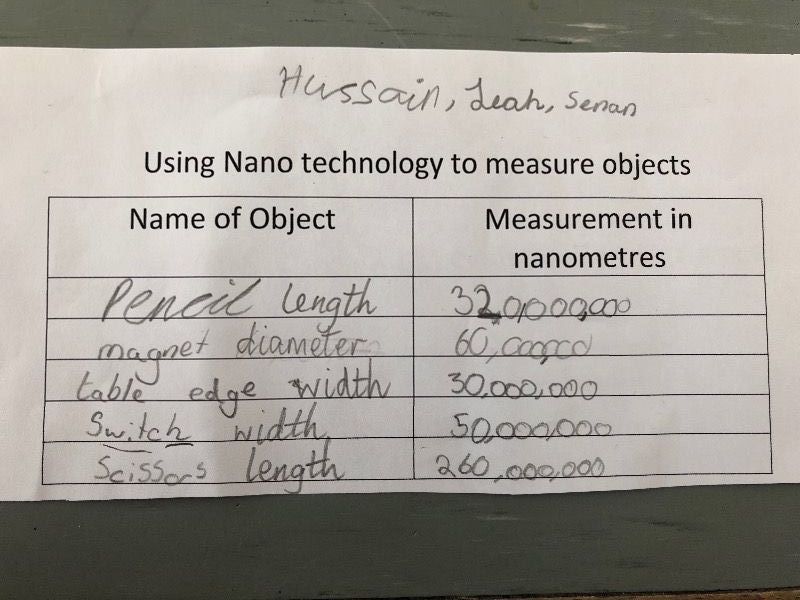 Hussain, Leah, Senan
Using Nano technology to measure objects
Name of Object Measurement in nanometres
Pencil length 320,000,000
magnet diameter 60,000,000
table edge width 30,000,000
Switch width 50,000,000
Scissors length 260,000,000